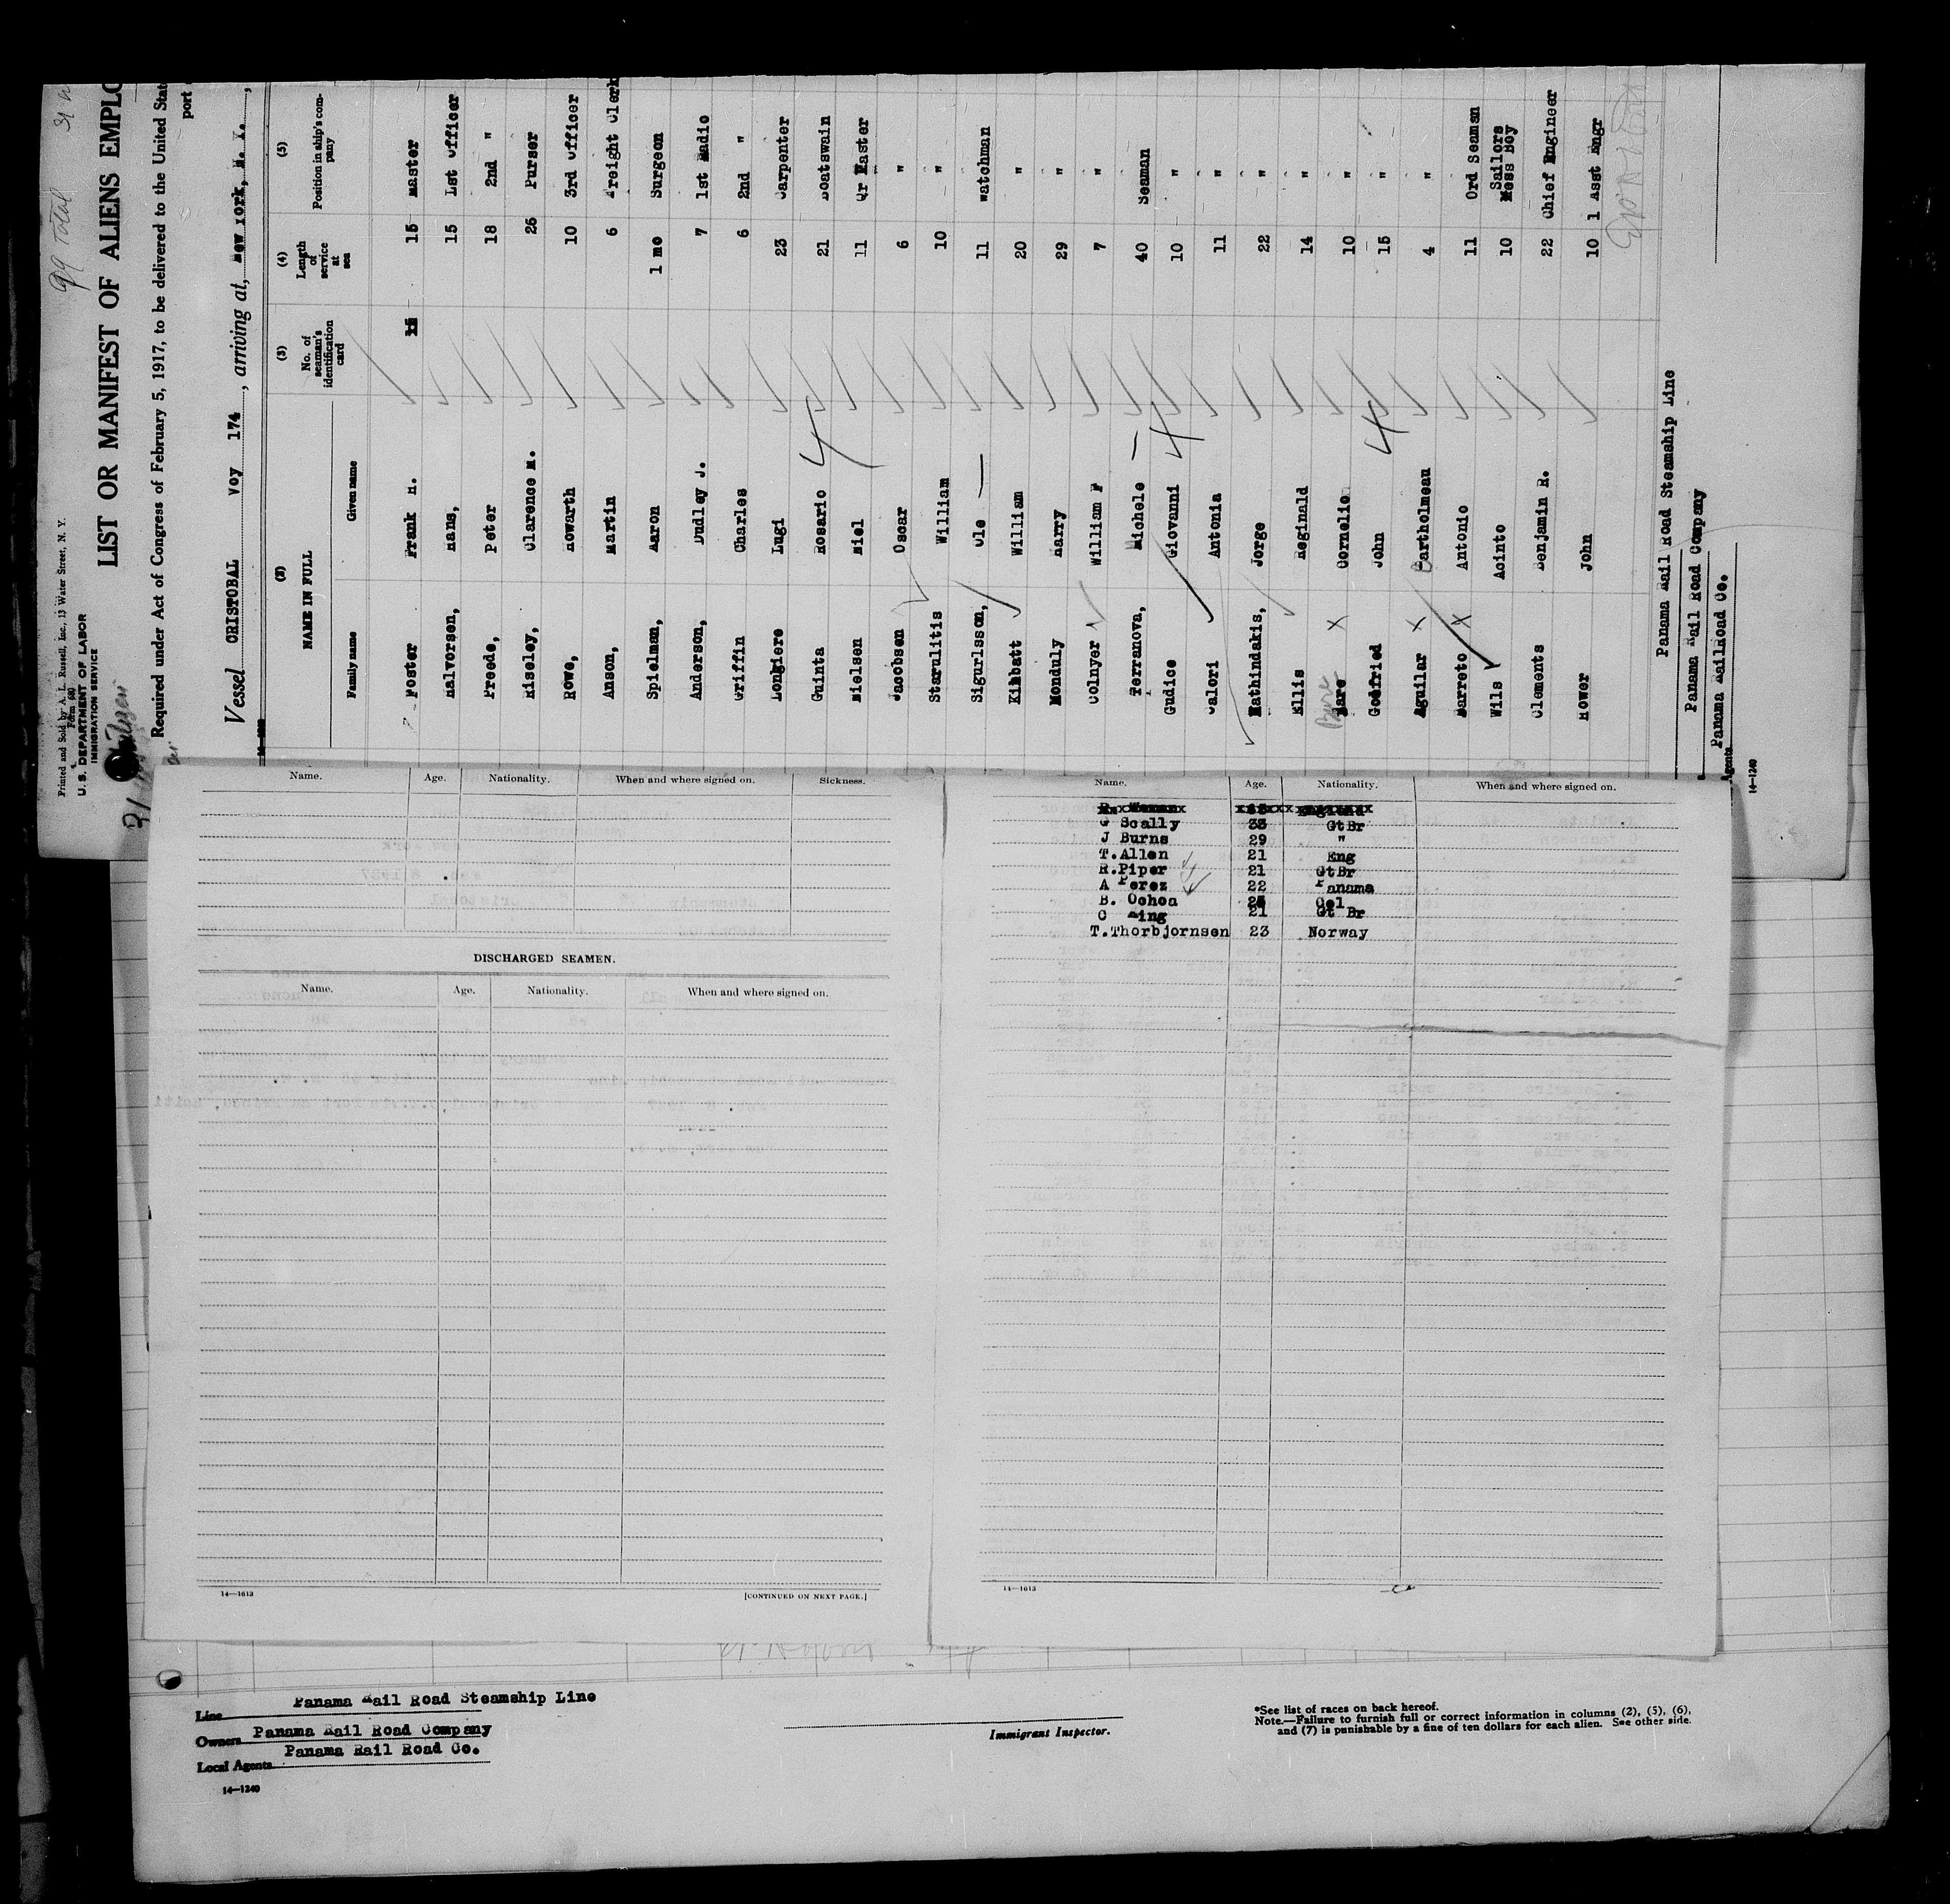 99 Total
Printed and Sold by A. L. Russell, Inc., 13 Water Street, N. Y.
U. S. DEPARTMENT OF LABOR
IMMIGRATION SERVICE
LIST OR MANIFEST OF ALIENS EMPLO
Required under Act of Congress of February 5, 1917, to be delivered to the United Stat
port
Vessel CRISTOBAL voy 174, arriving at, New York, N. Y.,
(2) (3) (4) (5)
NAME IN FULL No. of seaman's identification card Length of service at sea Position in ship's company
Family name Given name
Foster Frank H. 15 Master
Halvorsen, Hans, 15 1st Officer
Preede, Peter 18 2nd "
Riseley, Clarence M. 25 Purser
Rowe, Howarth 10 3rd Officer
Anson, Martin 6 Freight Clerk
Spielman, Aaron 1 mo Surgeon
Anderson, Dudley J. 7 1st Radio
Griffin Charles 6 2nd "
Longiere Lugi 23 Carpenter
Guinta Rosario 21 Boatswain
Nielsen Niel 11 Qr Master
Jacobsen Oscar 6 "
Starulitis William 10 "
Sigurlsson, Ole 11 Watchman
Kibbatt William 20 "
Monduly Harry 29 "
Colnyer William F 7 "
Terranova, Michele 40 Seaman
Gudice Giovanni 10 "
Calori Antonia 11 "
Mathindakis, Jorge 22 "
Ellis Reginald 14 "
Bare Cornelio 10 "
Godfried John 15 "
Aguilar Bartholmeau 4 "
Barreto Antonio 11 Ord Seaman
Wils Acinto 10 Sailors Mess Boy
Clements Benjamin R. 22 Chief Engineer
Hower John 10 1 Asst Engr
Panama Rail Road Steamship Line
Panama Rail Road Company
Panama Railroad Co.
Agents
14-1240
Name. Age. Nationality. When and where signed on. Sickness.
DISCHARGED SEAMEN.
Name. Age. Nationality. When and where signed on.
14—1613 [CONTINUED ON NEXT PAGE.]
Name. Age. Nationality. When and where signed on.
G Scally 33 GtBr
J Burns 29 "
T.Allen 21 Eng
R.Piper 21 GtBr
A Perez 22 Panama
B. Ochoa Col
C King 21 Gt Br
T.Thorbjornsen 23 Norway
14—1613
Line Panama Rail Road Steamship Line
Owners Panama Rail Road Company
Local Agents Panama Rail Road Co.
14—1240
Immigrant Inspector.
*See list of races on back hereof.
Note.—Failure to furnish full or correct information in columns (2), (5), (6),
and (7) is punishable by a fine of ten dollars for each alien. See other side.